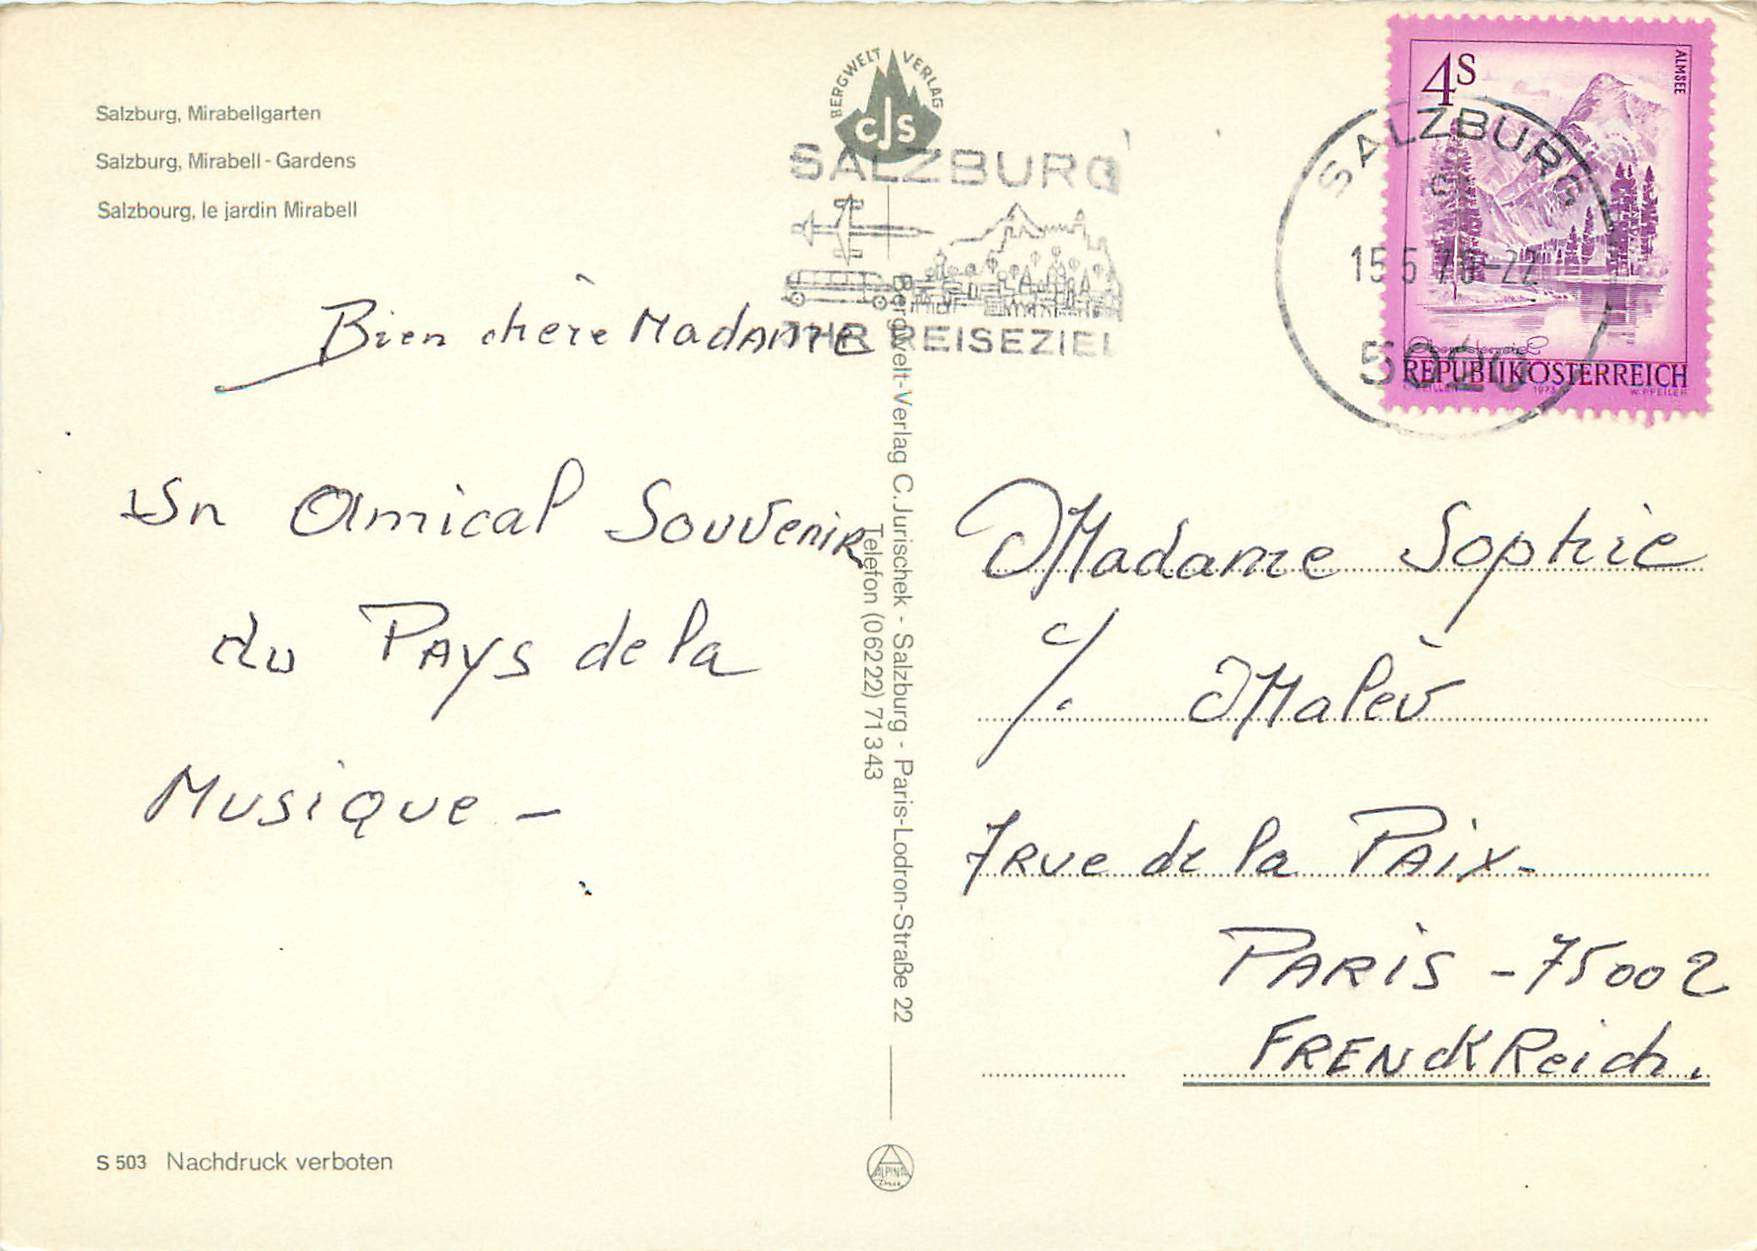 Salzburg, Mirabellgarten
Salzburg, Mirabell - Gardens
Salzbourg, le jardin Mirabell
BERGWELT VERLAG
CJS
SALZBURG
IHR REISEZIEL
4S
ALMSEE
SALZBURG
5020
REPUBLIK ÖSTERREICH
1973
W. PFEILER
Bien chère Madame
Un Amical Souvenir
du Pays de la
Musique -
Bergwelt-Verlag C. Jurischek - Salzburg - Paris-Lodron-Straße 22
Telefon (06222) 71343
Madame Sophie
c/. Malèv
7 rue de la Paix-
PARIS - 75002
FRENCKReich.
S 503 Nachdruck verboten
ALPINE